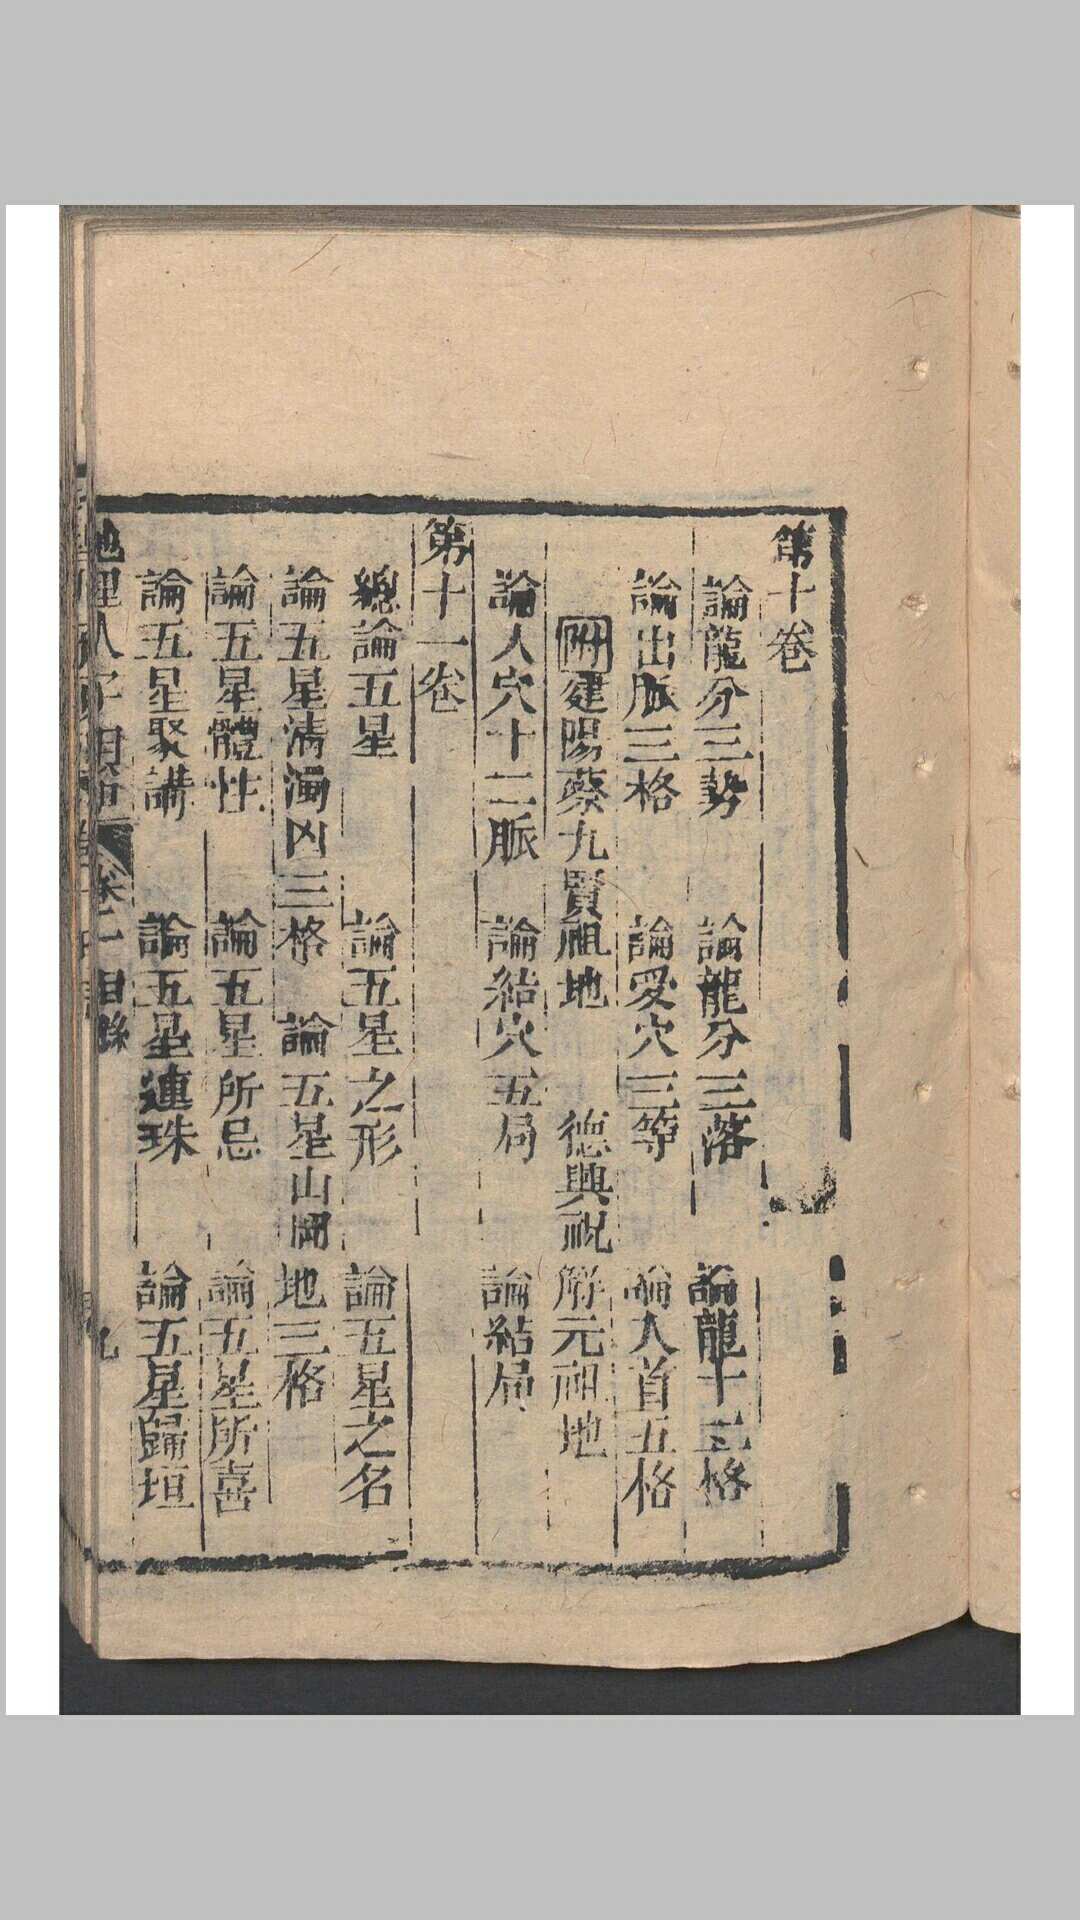 第十卷
論龍分三勢 論龍分三落 論龍十二格
論出脈三格 論受穴三等 論入首五格
附建陽蔡九賢祖地 德興祝解元祖地
論入穴十二脈 論結穴五局 論結局
第十一卷
總論五星 論五星之形 論五星之名
論五星清濁凶三格 論五星山岡地三格
論五星體性 論五星所忌 論五星所喜
論五星聚講 論五星連珠 論五星歸垣
地理人子須知 卷一 目錄 九